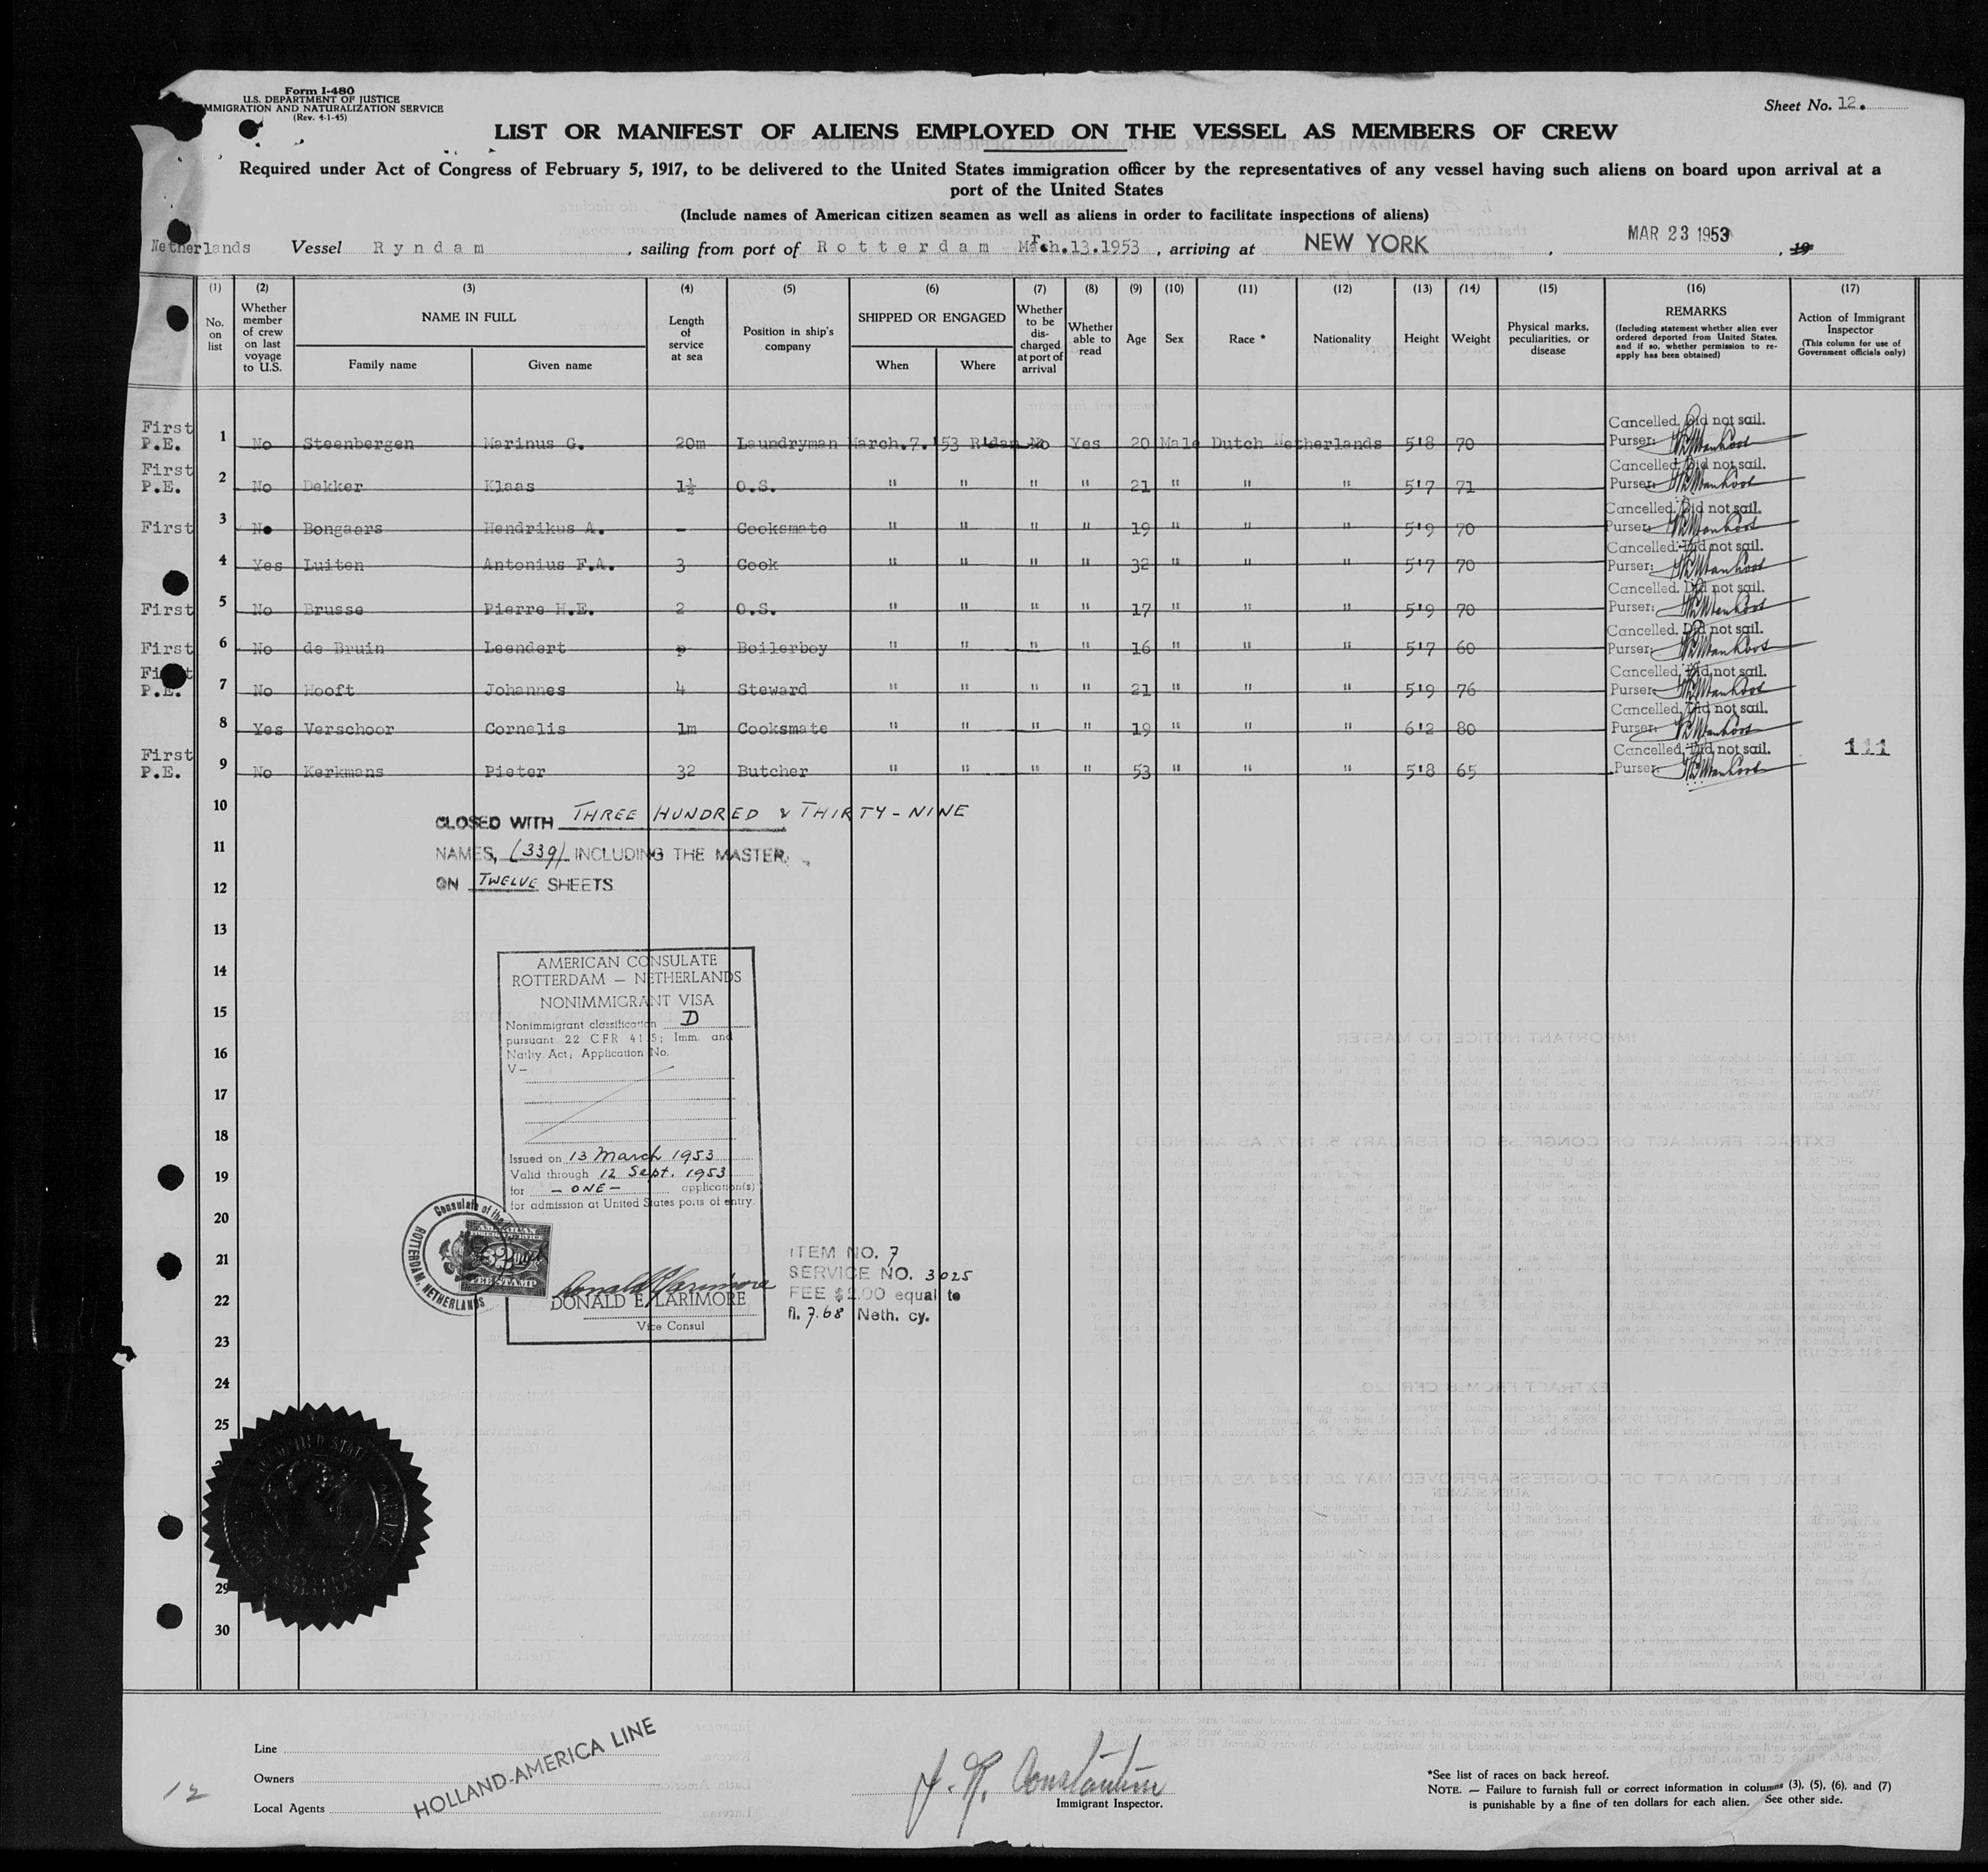 Form I-480
U.S. DEPARTMENT OF JUSTICE
IMMIGRATION AND NATURALIZATION SERVICE
(Rev. 4-1-45)
Sheet No. 12.
LIST OR MANIFEST OF ALIENS EMPLOYED ON THE VESSEL AS MEMBERS OF CREW
Required under Act of Congress of February 5, 1917, to be delivered to the United States immigration officer by the representatives of any vessel having such aliens on board upon arrival at a
port of the United States
(Include names of American citizen seamen as well as aliens in order to facilitate inspections of aliens)
Netherlands Vessel Ryndam, sailing from port of Rotterdam Mrch.13.1953, arriving at NEW YORK, MAR 23 1953, 19
(1) No. on list
(2) Whether member of crew on last voyage to U.S.
(3) NAME IN FULL
Family name
Given name
(4) Length of service at sea
(5) Position in ship's company
(6) SHIPPED OR ENGAGED
When
Where
(7) Whether to be discharged at port of arrival
(8) Whether able to read
(9) Age
(10) Sex
(11) Race *
(12) Nationality
(13) Height
(14) Weight
(15) Physical marks, peculiarities, or disease
(16) REMARKS
(Including statement whether alien ever ordered deported from United States, and if so, whether permission to reapply has been obtained)
(17) Action of Immigrant Inspector
(This column for use of Government officials only)
First P.E. 1 No Steenbergen Marinus G. 20m Laundryman March.7.'53 R'dam No Yes 20 Male Dutch Netherlands 5'8 70 Cancelled. Did not sail. Purser:
First P.E. 2 No Dekker Klaas 1½ O.S. " " " " 21 " " " 5'7 71 Cancelled. Did not sail. Purser:
First 3 No Bongaars Hendrikus A. - Cooksmate " " " " 19 " " " 5'9 70 Cancelled. Did not sail. Purser:
4 Yes Luiten Antonius F.A. 3 Cook " " " " 32 " " " 5'7 70 Cancelled. Did not sail. Purser:
First 5 No Brusse Pierre H.E. 2 O.S. " " " " 17 " " " 5'9 70 Cancelled. Did not sail. Purser:
First 6 No de Bruin Leendert Boilerboy " " " " 16 " " " 5'7 60 Cancelled. Did not sail. Purser:
First P.E. 7 No Hooft Johannes 4 Steward " " " " 21 " " " 5'9 76 Cancelled. Did not sail. Purser:
8 Yes Verschoor Cornelis 1m Cooksmate " " " " 19 " " " 6'2 80 Cancelled. Did not sail. Purser:
First P.E. 9 No Kerkmans Pieter 32 Butcher " " " " 53 " " " 5'8 65 Cancelled. Did not sail. Purser: 111
10
CLOSED WITH THREE HUNDRED & THIRTY-NINE
11
NAMES, (339) INCLUDING THE MASTER.
12
ON TWELVE SHEETS
13
14
15
16
17
18
19
20
21
22
23
24
25
29
30
AMERICAN CONSULATE
ROTTERDAM — NETHERLANDS
NONIMMIGRANT VISA
Nonimmigrant classification D
pursuant 22 CFR 41.5; Imm. and
Natly. Act; Application No.
V—
Issued on 13 March 1953
Valid through 12 Sept. 1953
for — ONE — application(s)
for admission at United States ports of entry.
Consulate of the
ROTTERDAM, NETHERLANDS
AMERICAN
FOREIGN SERVICE
$2
FEE STAMP
Donald E Larimore
DONALD E. LARIMORE
Vice Consul
ITEM NO. 7
SERVICE NO. 3025
FEE $2.00 equal to
fl. 7.68 Neth. cy.
Line
Owners
Local Agents
HOLLAND-AMERICA LINE
12
J. R. Constantine
Immigrant Inspector.
*See list of races on back hereof.
NOTE. — Failure to furnish full or correct information in columns (3), (5), (6), and (7)
is punishable by a fine of ten dollars for each alien. See other side.